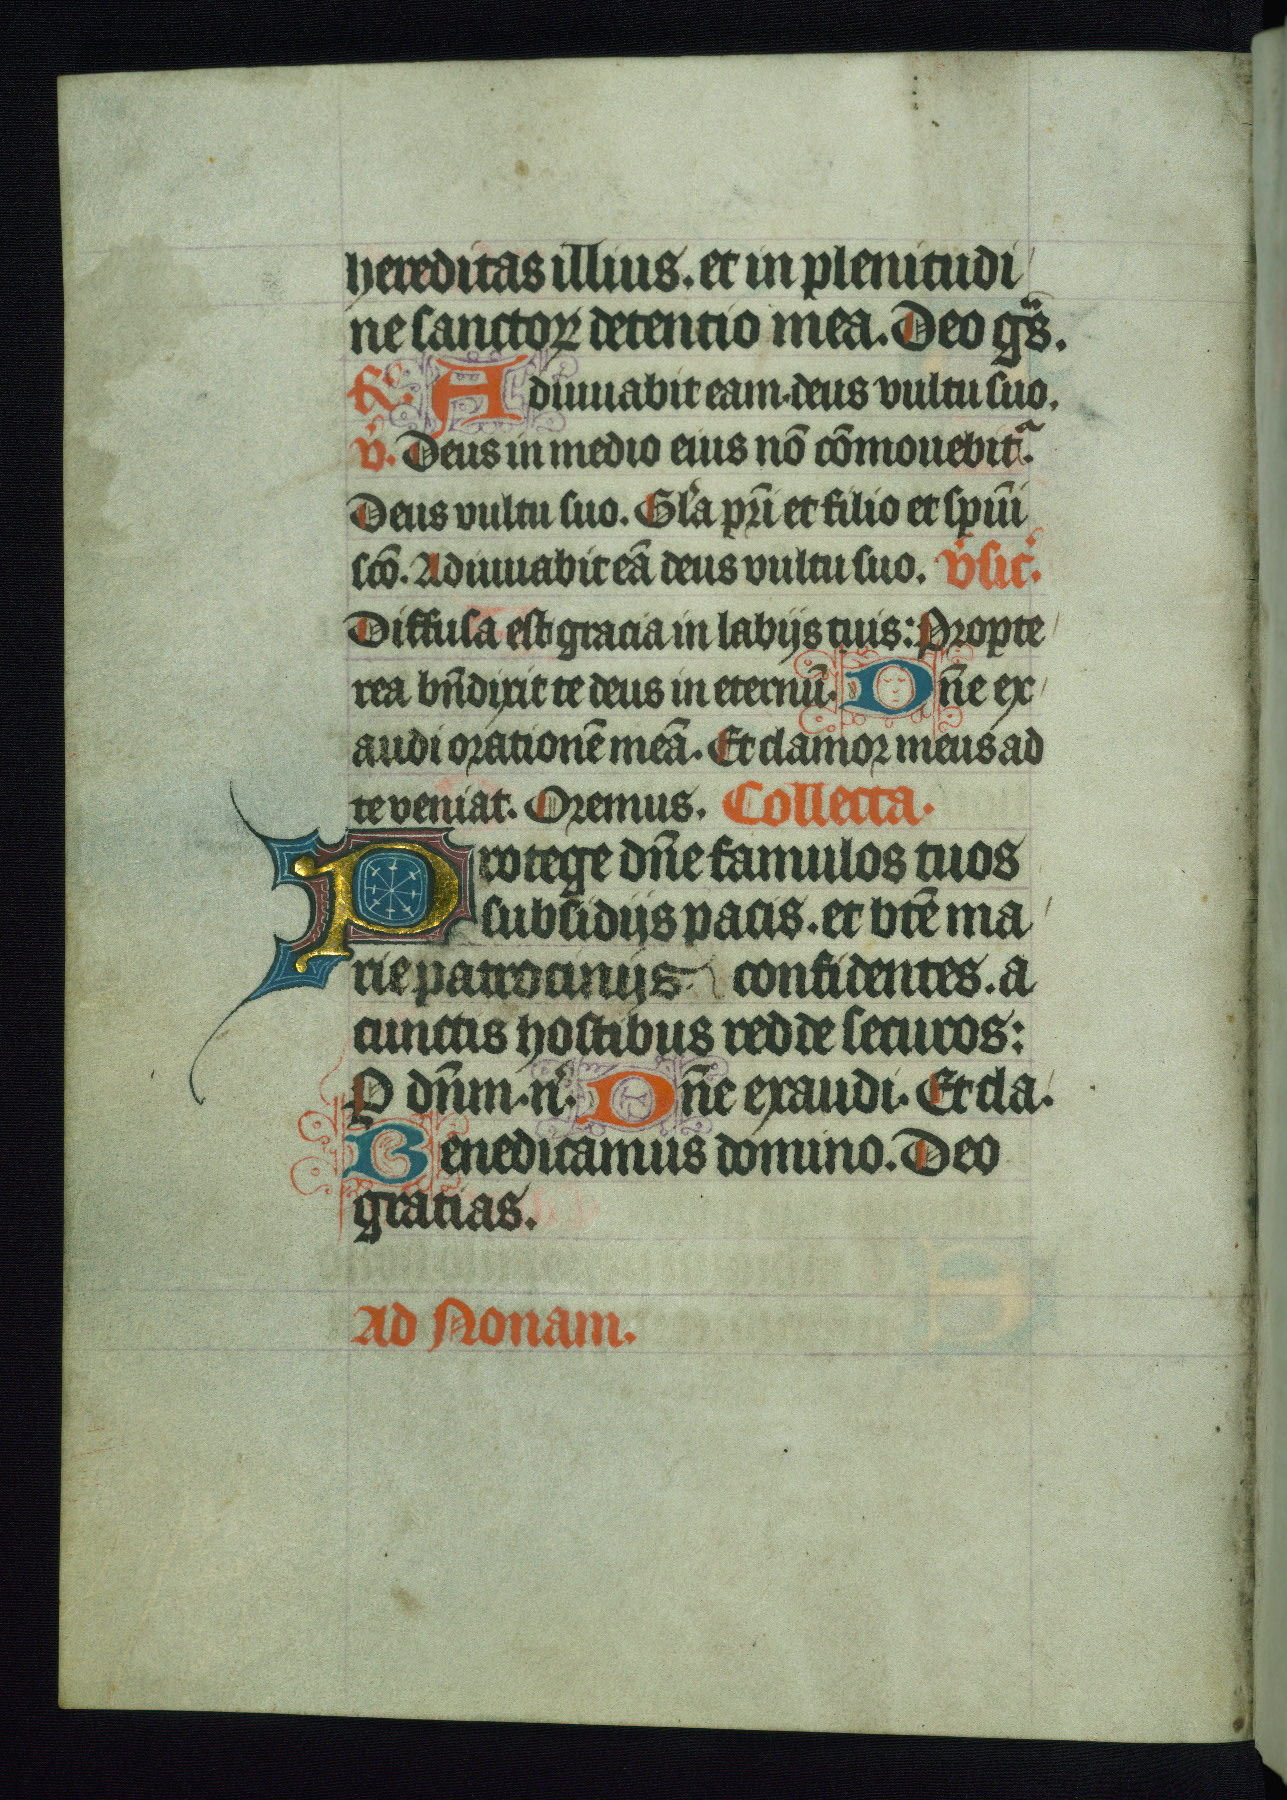 hereditas illius. et in plenitudi
ne sanctoꝝ detentio mea. Deo gr̄s.
R̄. Adiuuabit eam deus vultu suo.
v̄. Deus in medio eius nō cōmouebit᷑.
Deus vultu suo. Gl̄a pr̄i et filio et sp̄ui
sc̄o. Adiuuabit eā deus vultu suo. v̄sic̄.
Diffusa est gracia in labijs tuis: Propte
rea bn̄dixit te deus in eternū. Dn̄e ex
audi orationē meā. Et clamor meus ad
te veniat. Oremus. Collecta.
Protege dn̄e famulos tuos
subsidijs pacis. et btē ma
rie patrocinijs confidentes. a
cunctis hostibus redde securos:
P dn̄m. n̄. Dn̄e exaudi. Et cla.
Benedicamus domino. Deo
gratias.
Ad Nonam.